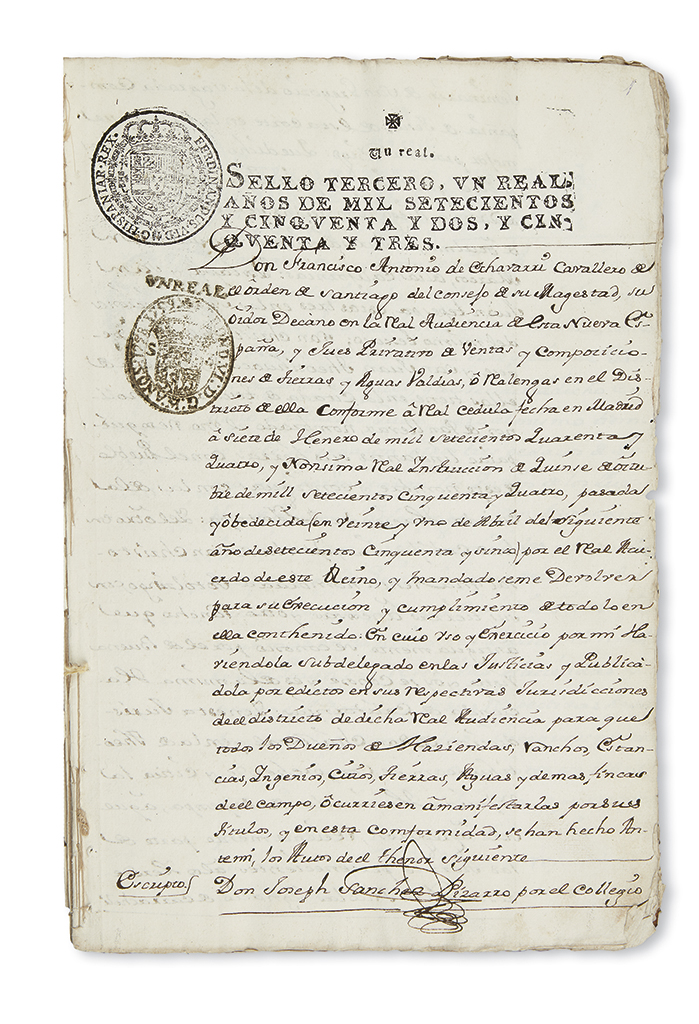 FERDINANDUS VI D G HISPANIAR REX
Un real.
SELLO TERCERO, VN REAL,
AÑOS DE MIL SETECIENTOS
Y CINQVENTA Y DOS, Y CIN-
QVENTA Y TRES.
VNREAL
Don Francisco Antonio de Echavarri Cavallero de
el orden de Santiago del consejo de su Magestad, su
Oidor Decano en la Real Audiencia de esta Nueva Es
paña, y Jues Privativo de Ventas y Composicio-
nes de tierras y Aguas Valdias, ô Realengas en el Dis
tricto de ella Conforme â Real cedula fecha en Madrid
â siete de Henero de mill setecientos Quarenta y
Quatro, y Novisima Real Instruccion de Quinse de octu
bre de mill setecientos Cinquenta y Quatro, pasada
y obedecida (en Veinte y Uno de Abril del siguiente
año de setecientos Cinquenta y sinco) por el Real Acu
erdo de este Reino, y mandadoseme Devolver
para su execucion y cumplimiento de todo lo en
ella conthenido: En cuio Uso y Exercicio por mi Ha
viendola subdelegado en las Justicias y Publica
dola por edictos en sus respectivas Jurisdicciones
de el districto de dicha Real Audiencia para que
todos los Dueños de Haziendas, Ranchos, Estan-
cias, Ingenios, Citios, tierras, Aguas y demas fincas
de el campo, ôcurriesen â manifestarlas por sus
titulos, y en esta comformidad, se han hecho An-
temi, los Autos de el thenor siguiente
Escripto
Don Joseph Sanchez Pizarro por el Collegio